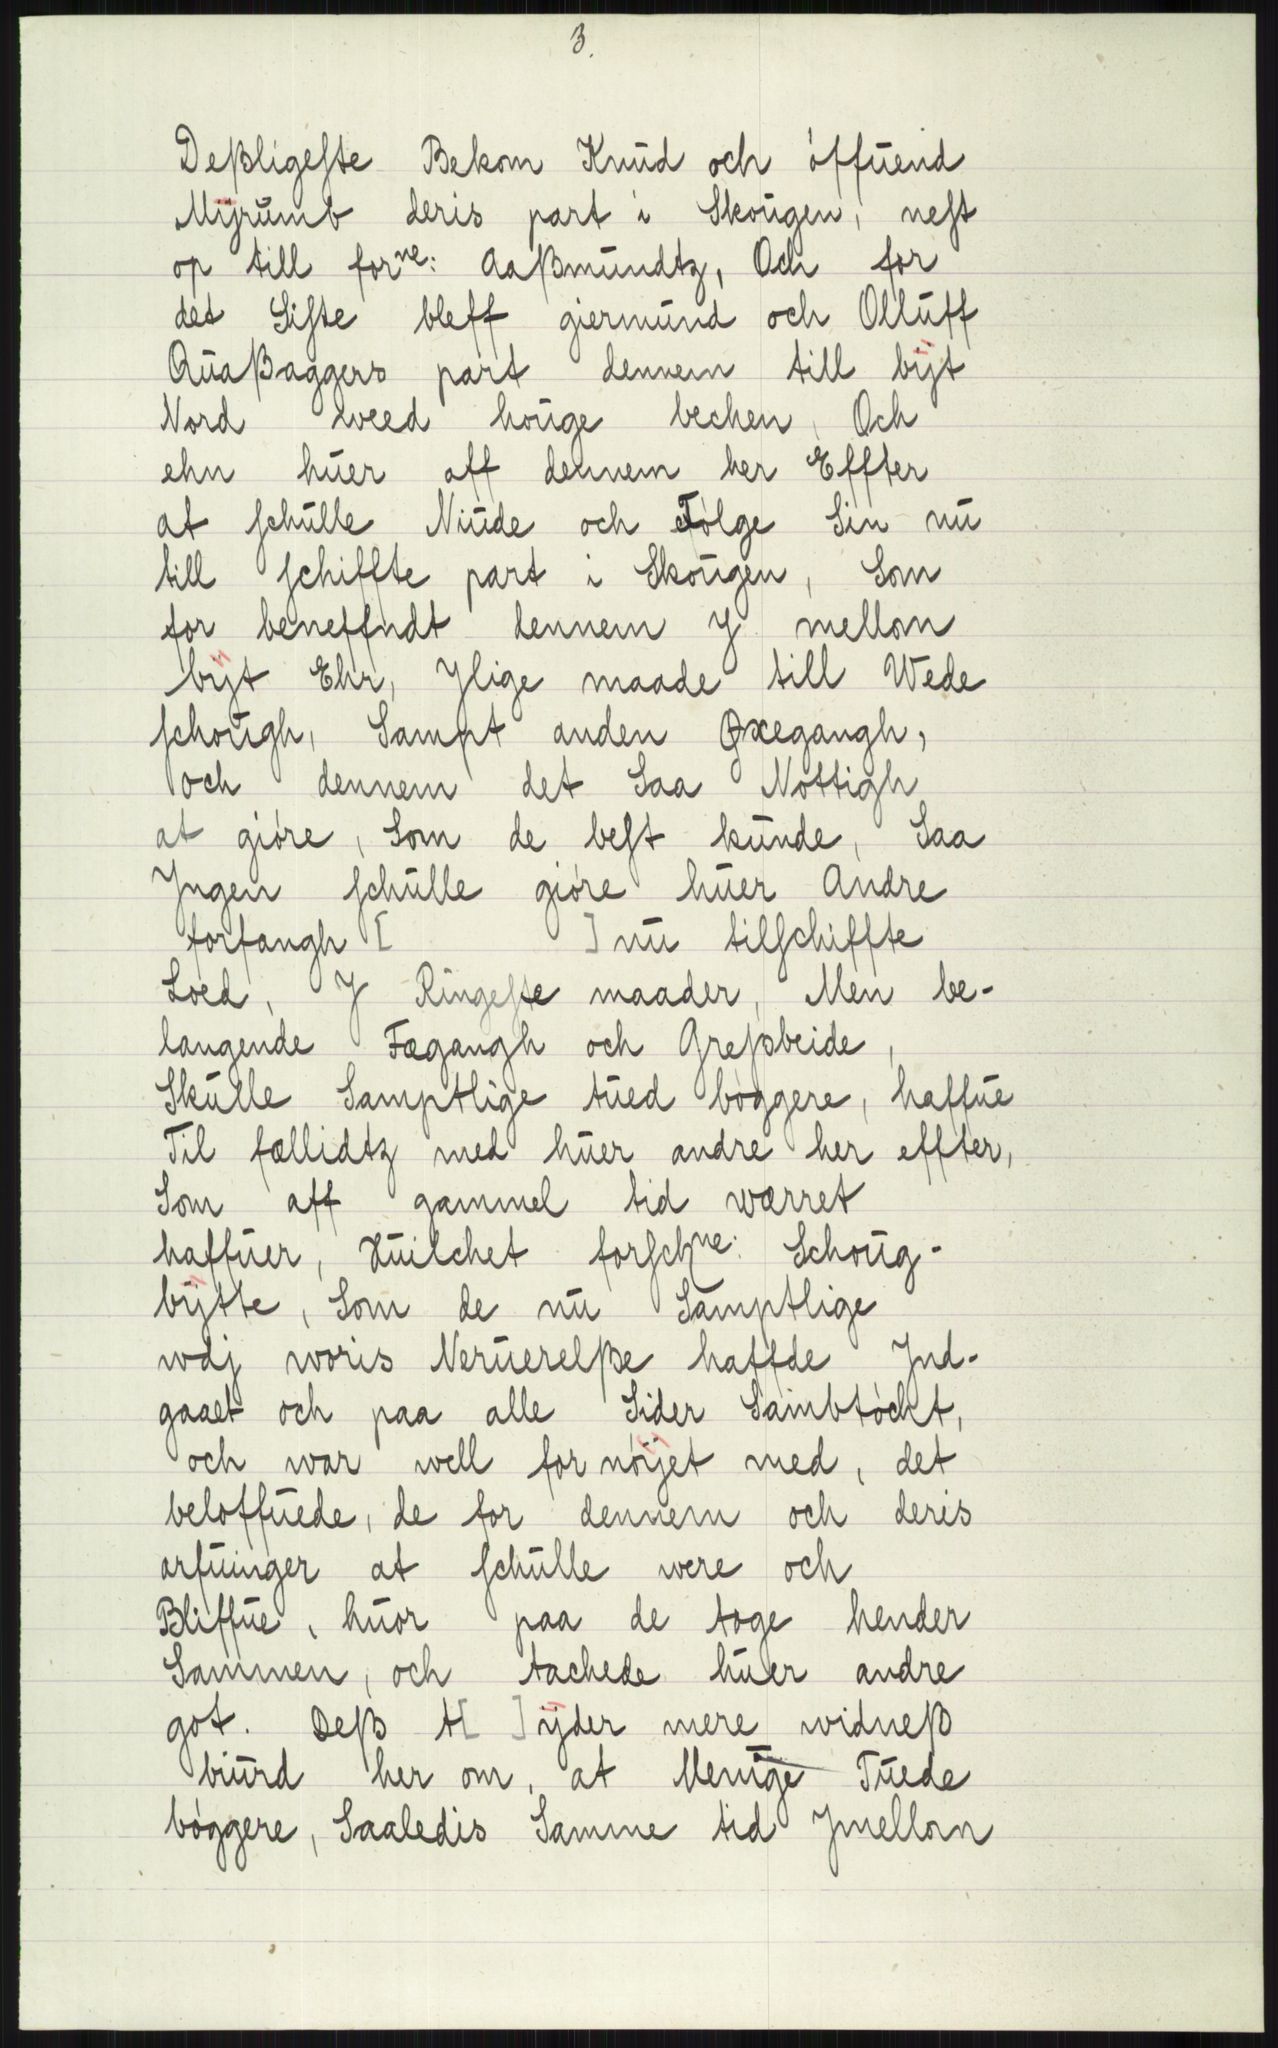 3.
Deßligeste Bekom Knud och óffuend
Mÿrumb deris part i Skougen, nest
op till forne: Aaßmundtz, Och for
det Siste bleff giermund och Olluff
Quaßaggers part dennem till bÿt
Nord weed houge bechen, Och
ehn huer aff dennem her Effter
at schulle Niude och Følge Sin nu
till schiffte part i Skougen, Som
for beneffndt dennem Y mellom
bÿt Ehr, Ylige maade till Wede
schough, Sampt anden Oxegangh,
och dennem det Saa Nottigh
at gióre, Som de best kunde, Saa
Yngen schulle gióre huer Andre
forfangh [ ] nu tilschiffte
Loed, Y Ringeste maader, Men be-
langende Fægangh och Greßbeide,
Skulle Samptlige tued bøggere, haffue
Til fællidtz med huer andre her effter,
Som aff gammel tid wærret
haffuer, Huilchet forschne: Schoug-
bÿtte, Som de nu Samptlige
wdj woris Neruerelße haffde Ind-
gaaet och paa alle Sider Sambtóckt,
och war well for nóÿet med, det
beloffuede, de for dennem och deris
arfuinger at schulle were och
Bliffue, huor paa de toge hender
Sammen, och tachede huer andre
got. Deß t[ ] ÿder mere widneß
biurd her om, at Menige Tuede
bøggere, Saaledis Samme tid Ymellom